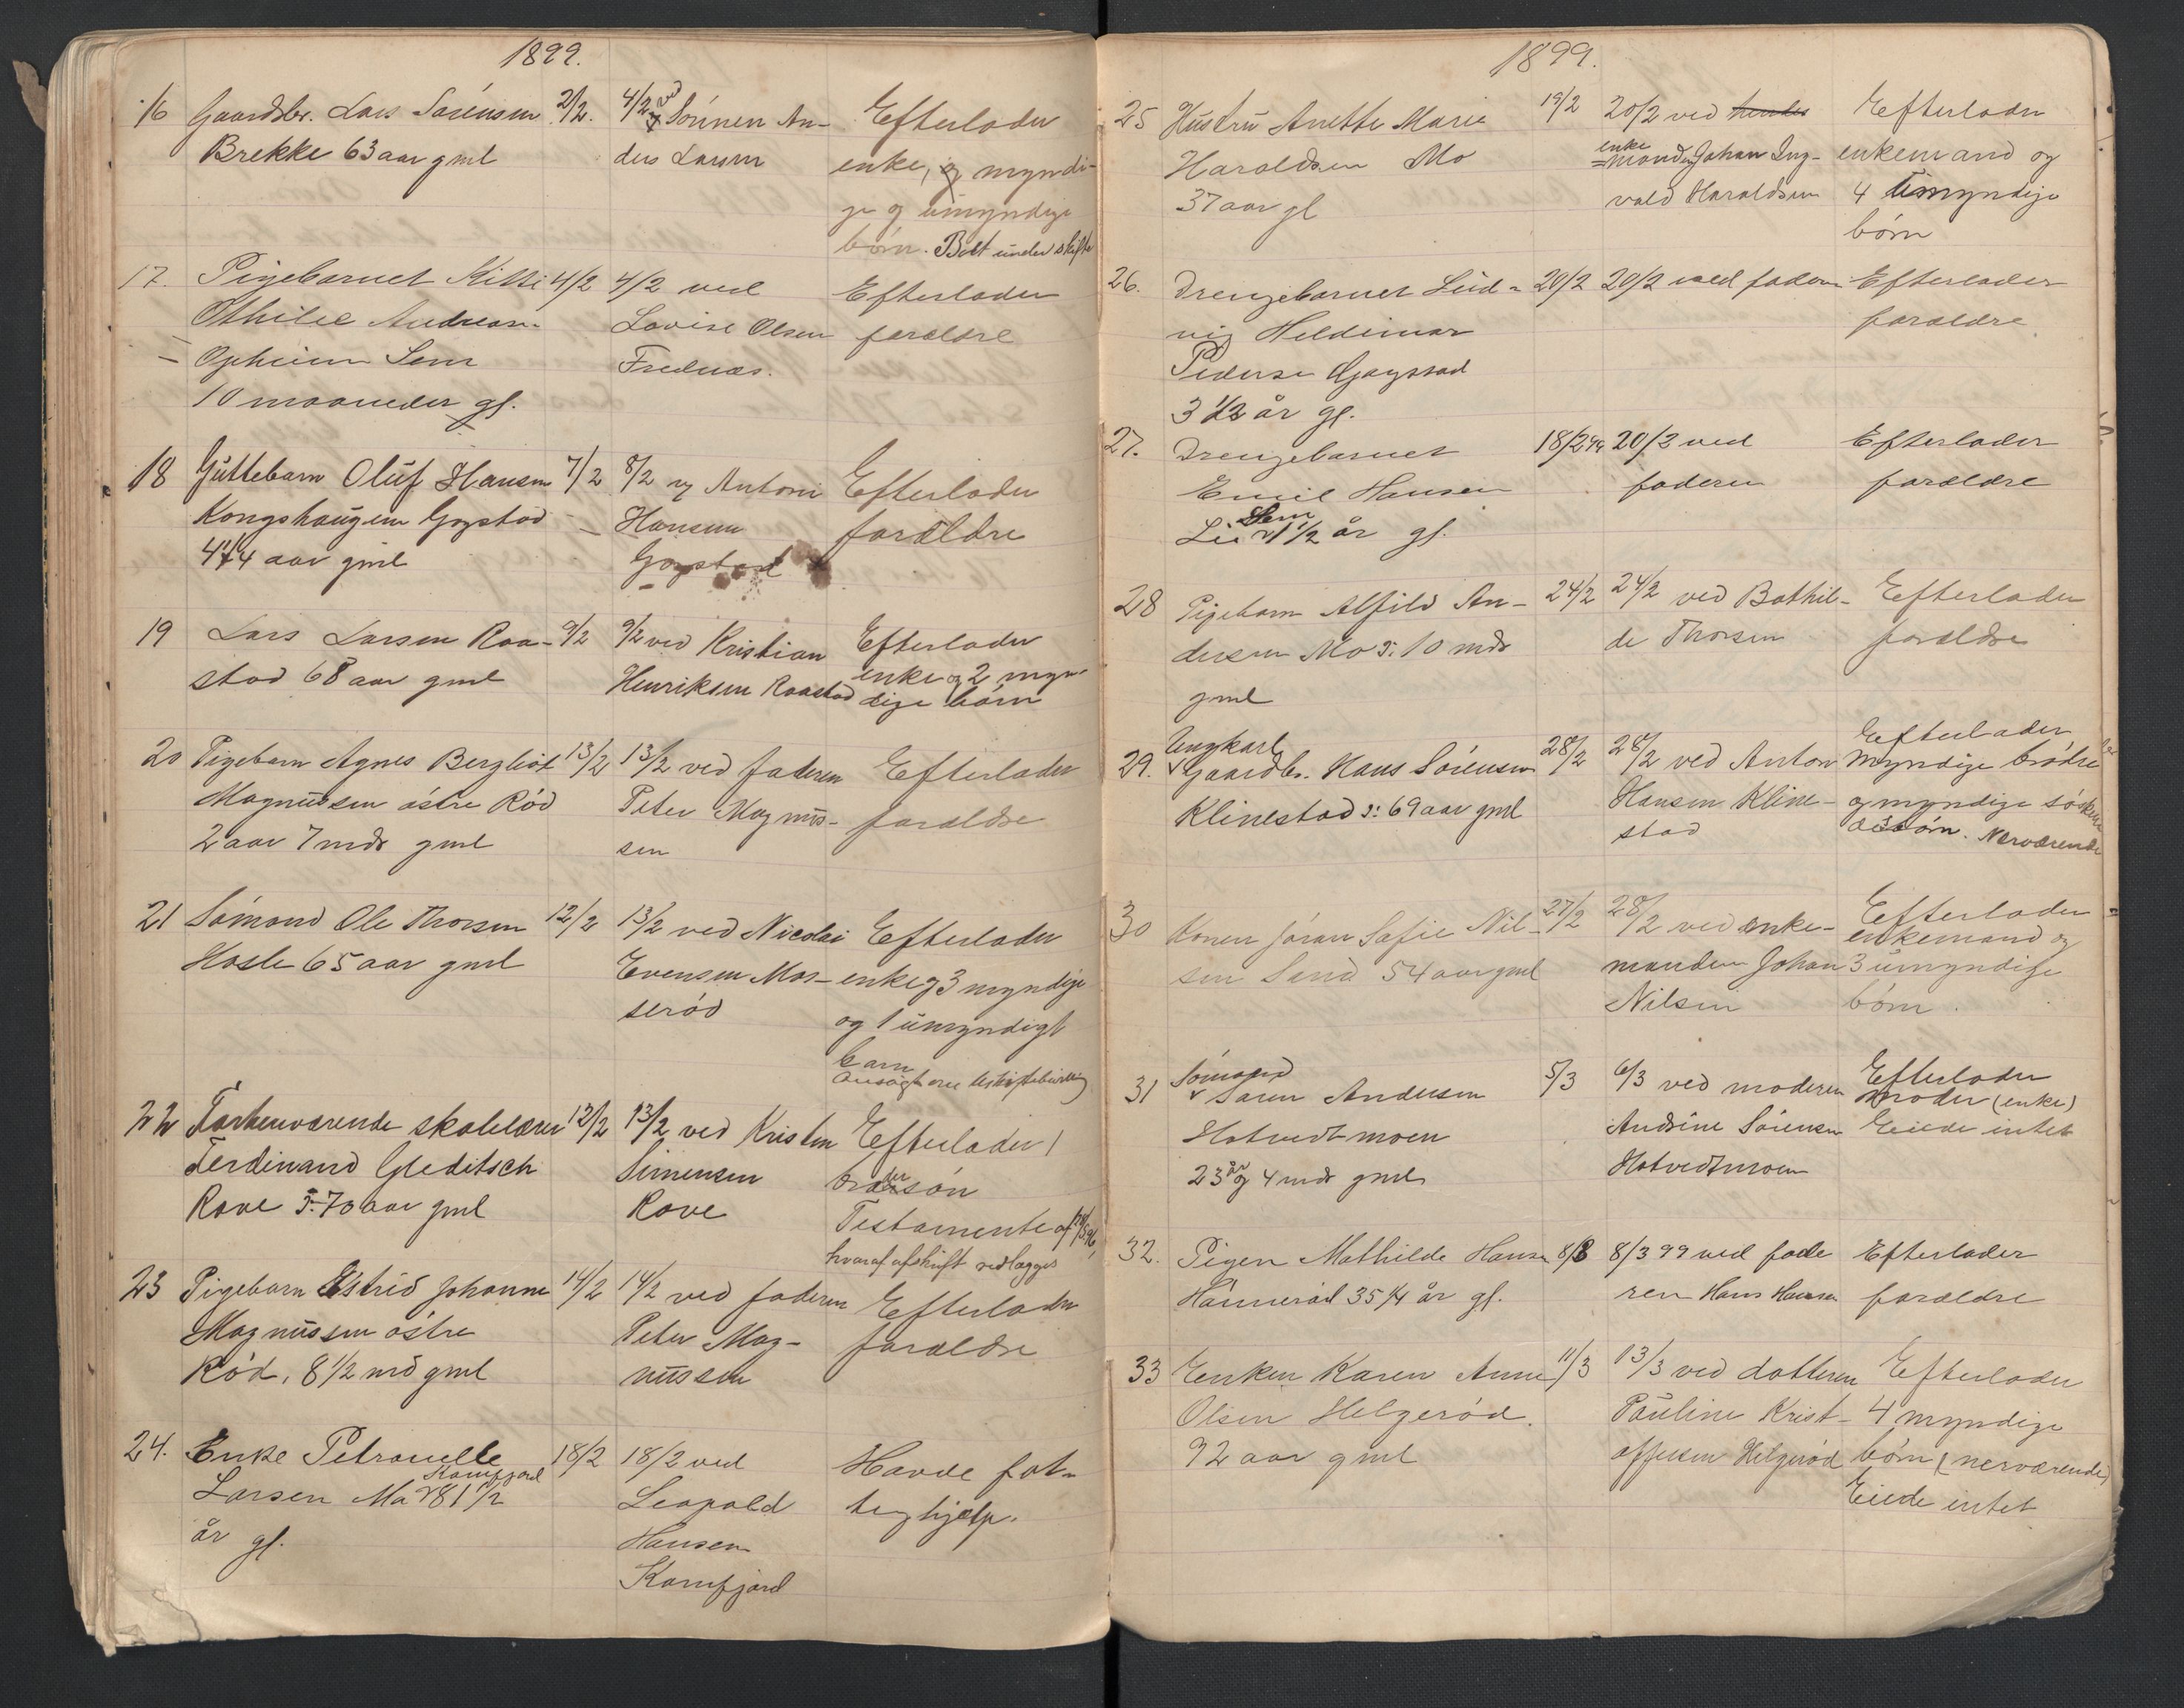 1899.
16 Gaardbr. Lars Sørensen 2/2. 4/2 ved Sønnen An- Efterlader
Brekke 63 aar gml ders Larsen enke, og myndi-
ge og umyndige
børn. Bolt under skifte
17. Pigebarnet Kitti 4/2 4/2 ved Efterlader
Othilie Andrea Lovise Olsen forældre
Opheim Sem Frednæs.
10 maaneder gl.
18 Guttebarn Oluf Hansen 7/2 8/2 v Antoni Efterlader
Kongshaugen Gogstad Hansen forældre
4 1/4 aar gml Gogstad
19 Lars Larsen Raa- 9/2 9/2 ved Kristian Efterlader
stad 68 aar gml Henriksen Raastad enke og 2 myn-
dige børn
20 Pigebarn Agnes Bergliot 13/2 13/2 ved faderen Efterlader
Magnussen østre Rød Peter Magnus- forældre
2 aar 7 mdr gml sen
21 Sømand Ole Thorsen 12/2 13/2 ved Nicolai Efterlader
Hasle 65 aar gml Evensen Mos- enke og 3 myndige
serød og 1 umyndigt
barn
Ansøgt om uskiftebevilling
22 Forhenværende skolelærer 12/2 13/2 ved Kristen Efterlader 1
Ferdinand Gleditsch Simensen brodersøn
Rove 5: 70 aar gml Rove Testamente af
hvoraf afskrift vedlægges
23 Pigebarn Estrid Johanne 14/2 14/2 ved faderen Efterlader
Magnussen østre Peter Mag- forældre
Rød, 8 1/2 md gml nussen
24. Enke Petronelle 18/2 18/2 ved Havde fat-
Kamfjord
Larsen Mo 81 1/2 Leopold tighjælp.
år gl. Hansen
Kamfjord
1899.
25 Hustru Anette Marie 19/2 20/2 ved hendes Efterlader
Haraldsen Mo enkemanden Johan Ing- enkemand og
37 aar gl vald Haraldsen 4 umyndige
børn
26. Drengebarnet Lud- 20/2 20/2 ved faderen Efterlader
vig Heldimar forældre
Pederse Gogstad
3 1/2 år gl.
27. Drengebarnet 18/2 99 20/2 ved Efterlader
Emil Hansen faderen forældre
Sem
Lie 1 1/2 år gl.
28 Pigebarn Alfild An- 24/2 24/2 ved Bothil- Efterlader
dersen Mo 5: 10 mdr de Thorsen forældre
gml
Ungkarl Efterlader
29. Gaardbr. Hans Sørensen 28/2 28/2 ved Anton myndige brødre
Klinestad 5: 69 aar gml Hansen Kline- og myndige søsken-
stad debørn. Nærværende
30 Konen Jøran Sofie Nil- 27/2 28/2 ved enke- Efterlader
enkemand og
sen Sand 54 aar gml manden Johan 3 umyndige
Nilsen børn.
Sømand
31 Søren Andersen 5/3 6/3 ved moderen Efterlader
moder (enke)
Hotvedtmoen Andrine Sørensen Eiede intet
23 år og 4 mdr gml Hotvedtmoen
32. Pigen Mathilde Hansen 8/3 8/3 99 ved fade Efterlader
Hannerød 35 1/4 år gl. ren Hans Hansen forældre
33 Enken Karen Anne 11/3 13/3 ved datteren Efterlader
Olsen Helgerød. Pauline Krist- 4 myndige
92 aar gml offersen Helgerød børn (nerværende)
Eiede intet